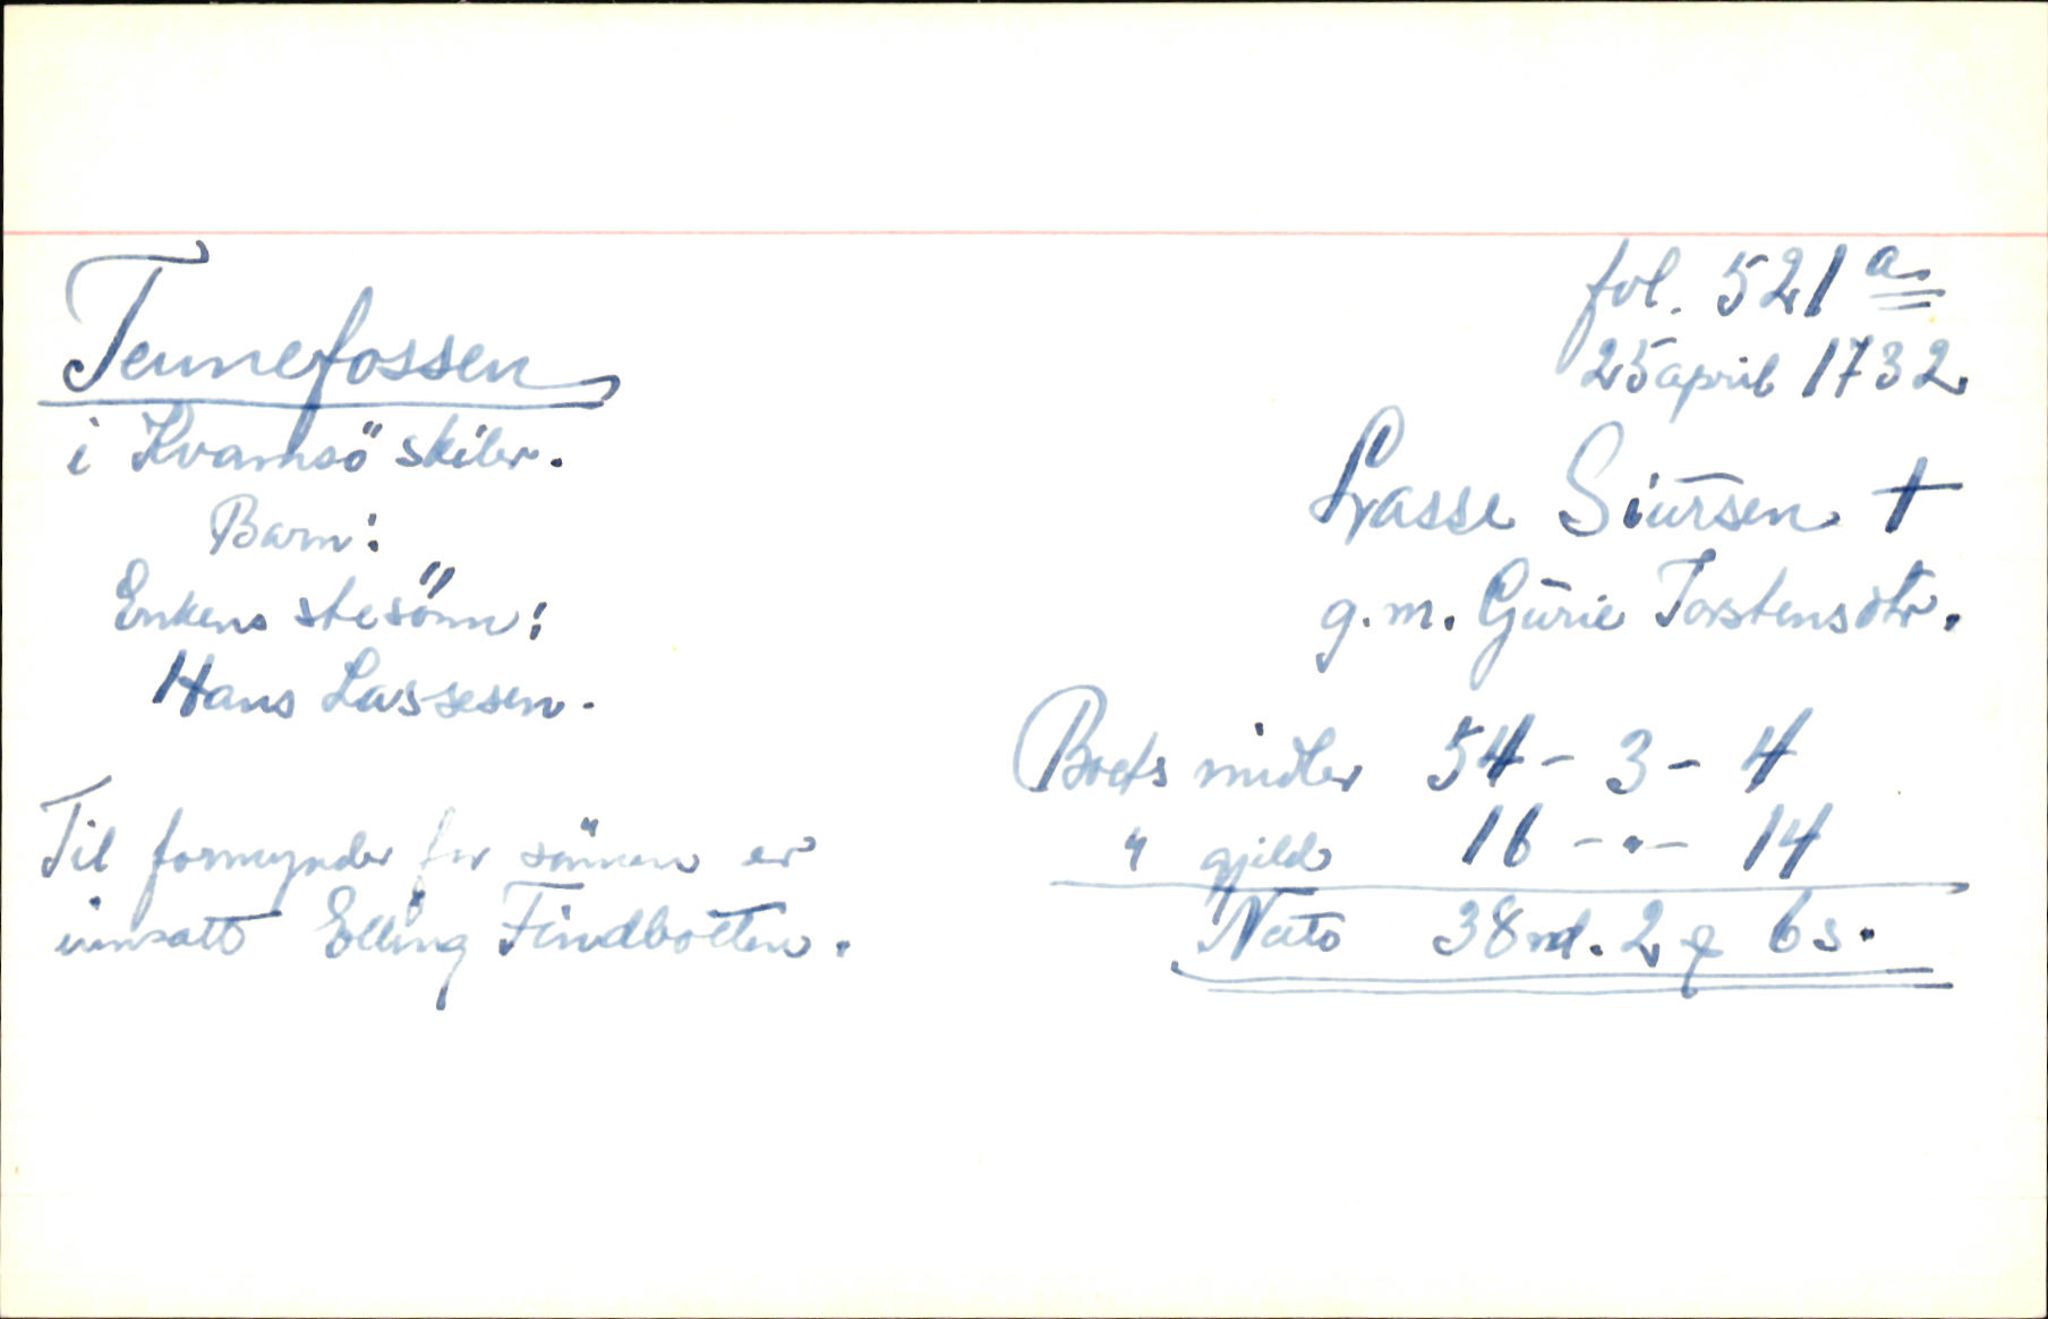 fol. 521 a.
25 april 1732
Tennefossen
i Kvamsö skibr.
Lasse Siursen †
g.m. Gurie Torstensdtr.
Barn:
Enkens stesönn:
Hans Lassesen.
Boets midler 54 - 3 - 4
" gjeld 16 - " - 14
Netto 38 rd. 2 q 6 s.
Til formynder for sönnen er
innsatt Elling Findbotten.